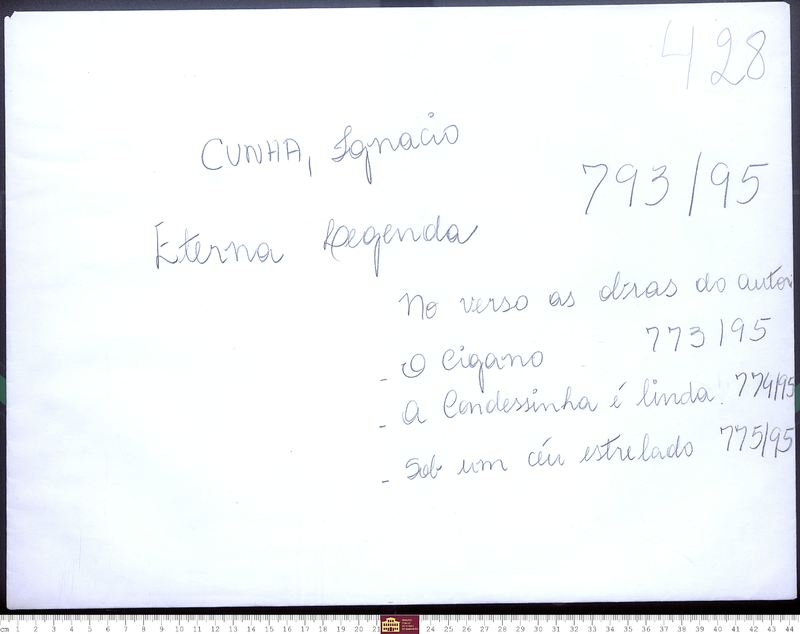 428
CUNHA, Ignacio
793/95
Eterna Legenda
No verso as obras do autor
- O Cigano 773/95
- A Condessinha é linda! 774/95
- Sob um céu estrelado 775/95
cm 1 2 3 4 5 6 7 8 9 10 11 12 13 14 15 16 17 18 19 20 21 24 25 26 27 28 29 30 31 32 33 34 35 36 37 38 39 40 41 42 43 44